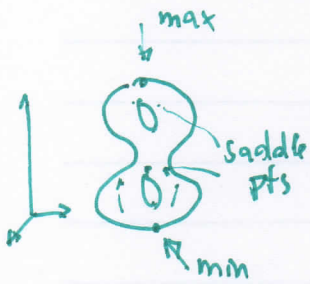 max
saddle
pts
min